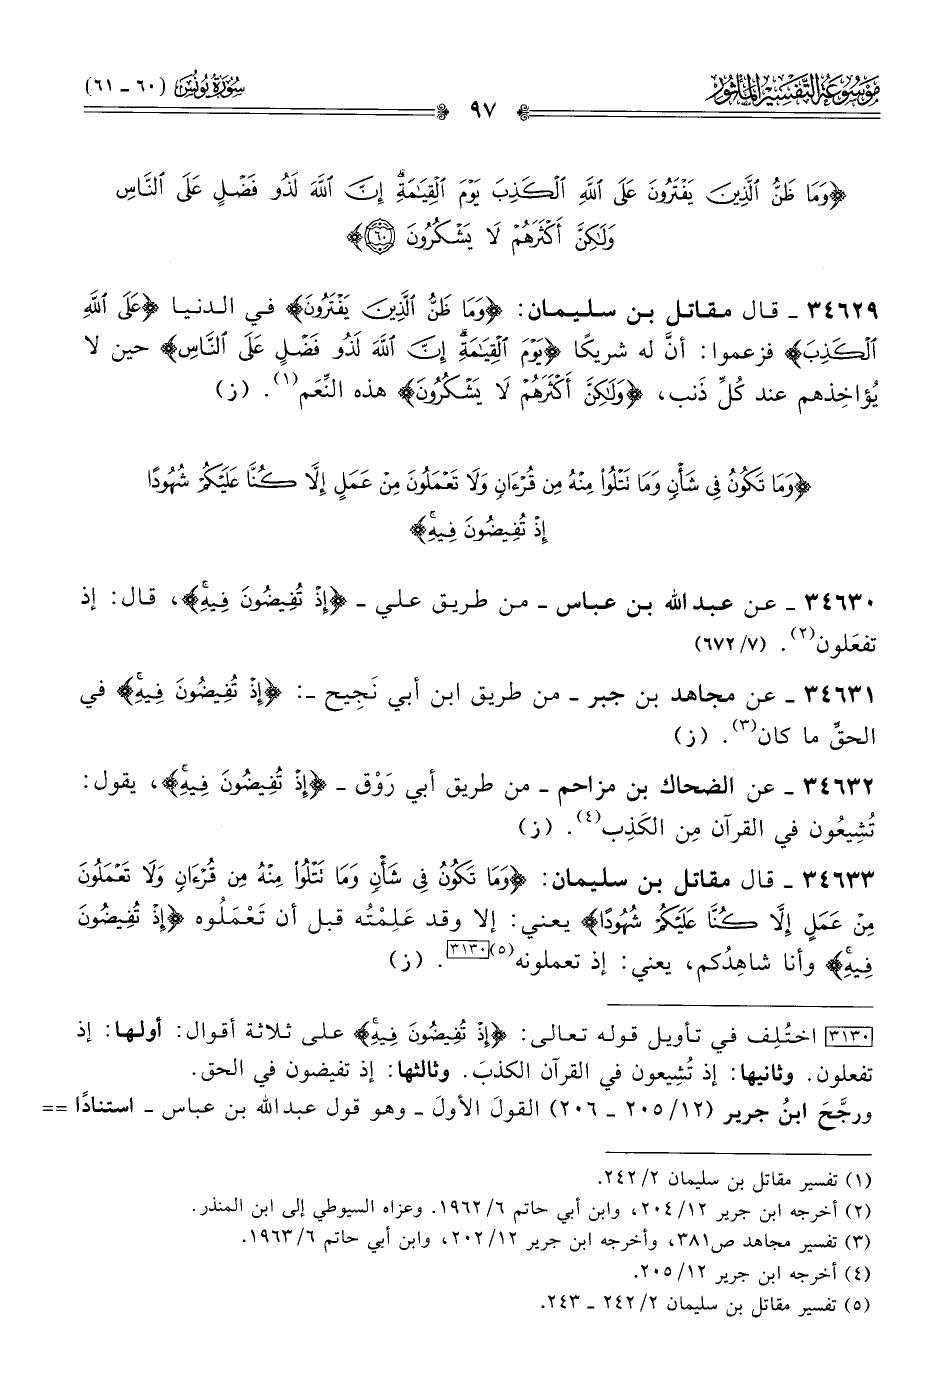 مَوْسُوعَةُ التَّفْسِيرِ المَأْثُورِ
سُورَةُ يُونُسَ (٦٠ - ٦١)
٩٧
﴿وَمَا ظَنُّ ٱلَّذِينَ يَفْتَرُونَ عَلَى ٱللَّهِ ٱلْكَذِبَ يَوْمَ ٱلْقِيَٰمَةِۗ إِنَّ ٱللَّهَ لَذُو فَضْلٍ عَلَى ٱلنَّاسِ
وَلَٰكِنَّ أَكْثَرَهُمْ لَا يَشْكُرُونَ ٦٠﴾
٣٤٦٢٩ - قال مقاتل بن سليمان: ﴿وَمَا ظَنُّ ٱلَّذِينَ يَفْتَرُونَ﴾ في الدنيا ﴿عَلَى ٱللَّهِ
ٱلْكَذِبَ﴾ فزعموا: أنَّ له شريكًا ﴿يَوْمَ ٱلْقِيَٰمَةِۗ إِنَّ ٱللَّهَ لَذُو فَضْلٍ عَلَى ٱلنَّاسِ﴾ حين لا
يُؤاخِذهم عند كُلِّ ذَنب، ﴿وَلَٰكِنَّ أَكْثَرَهُمْ لَا يَشْكُرُونَ﴾ هذه النِّعَم(١). (ز)
﴿وَمَا تَكُونُ فِى شَأْنٍ وَمَا تَتْلُوا۟ مِنْهُ مِن قُرْءَانٍ وَلَا تَعْمَلُونَ مِنْ عَمَلٍ إِلَّا كُنَّا عَلَيْكُمْ شُهُودًا
إِذْ تُفِيضُونَ فِيهِۚ﴾
٣٤٦٣٠ - عن عبد الله بن عباس - من طريق علي - ﴿إِذْ تُفِيضُونَ فِيهِۚ﴾، قال: إذ
تفعَلون(٢). (٧/ ٦٧٢)
٣٤٦٣١ - عن مجاهد بن جبر - من طريق ابن أبي نَجِيح -: ﴿إِذْ تُفِيضُونَ فِيهِۚ﴾ في
الحقِّ ما كان(٣). (ز)
٣٤٦٣٢ - عن الضحاك بن مزاحم - من طريق أبي رَوْق - ﴿إِذْ تُفِيضُونَ فِيهِۚ﴾، يقول:
تُشِيعُون في القرآن مِن الكَذِب(٤). (ز)
٣٤٦٣٣ - قال مقاتل بن سليمان: ﴿وَمَا تَكُونُ فِى شَأْنٍ وَمَا تَتْلُوا۟ مِنْهُ مِن قُرْءَانٍ وَلَا تَعْمَلُونَ
مِنْ عَمَلٍ إِلَّا كُنَّا عَلَيْكُمْ شُهُودًا﴾ يعني: إلا وقد عَلِمْتُه قبل أن تَعْمَلُوه ﴿إِذْ تُفِيضُونَ
فِيهِۚ﴾ وأنا شاهِدُكم، يعني: إذ تعملونه(٥)[٣١٣٠]. (ز)
[٣١٣٠] اختُلِف في تأويل قوله تعالى: ﴿إِذْ تُفِيضُونَ فِيهِۚ﴾ على ثلاثة أقوال: أولها: إذ
تفعلون. وثانيها: إذ تُشِيعون في القرآن الكذبَ. وثالثها: إذ تفيضون في الحق.
ورجَّحَ ابنُ جرير (١٢/ ٢٠٥ - ٢٠٦) القولَ الأولَ - وهو قول عبد الله بن عباس - استنادًا ==
(١) تفسير مقاتل بن سليمان ٢/ ٢٤٢.
(٢) أخرجه ابن جرير ١٢/ ٢٠٤، وابن أبي حاتم ٦/ ١٩٦٢. وعزاه السيوطي إلى ابن المنذر.
(٣) تفسير مجاهد ص٣٨١، وأخرجه ابن جرير ١٢/ ٢٠٢، وابن أبي حاتم ٦/ ١٩٦٣.
(٤) أخرجه ابن جرير ١٢/ ٢٠٥.
(٥) تفسير مقاتل بن سليمان ٢/ ٢٤٢ - ٢٤٣.